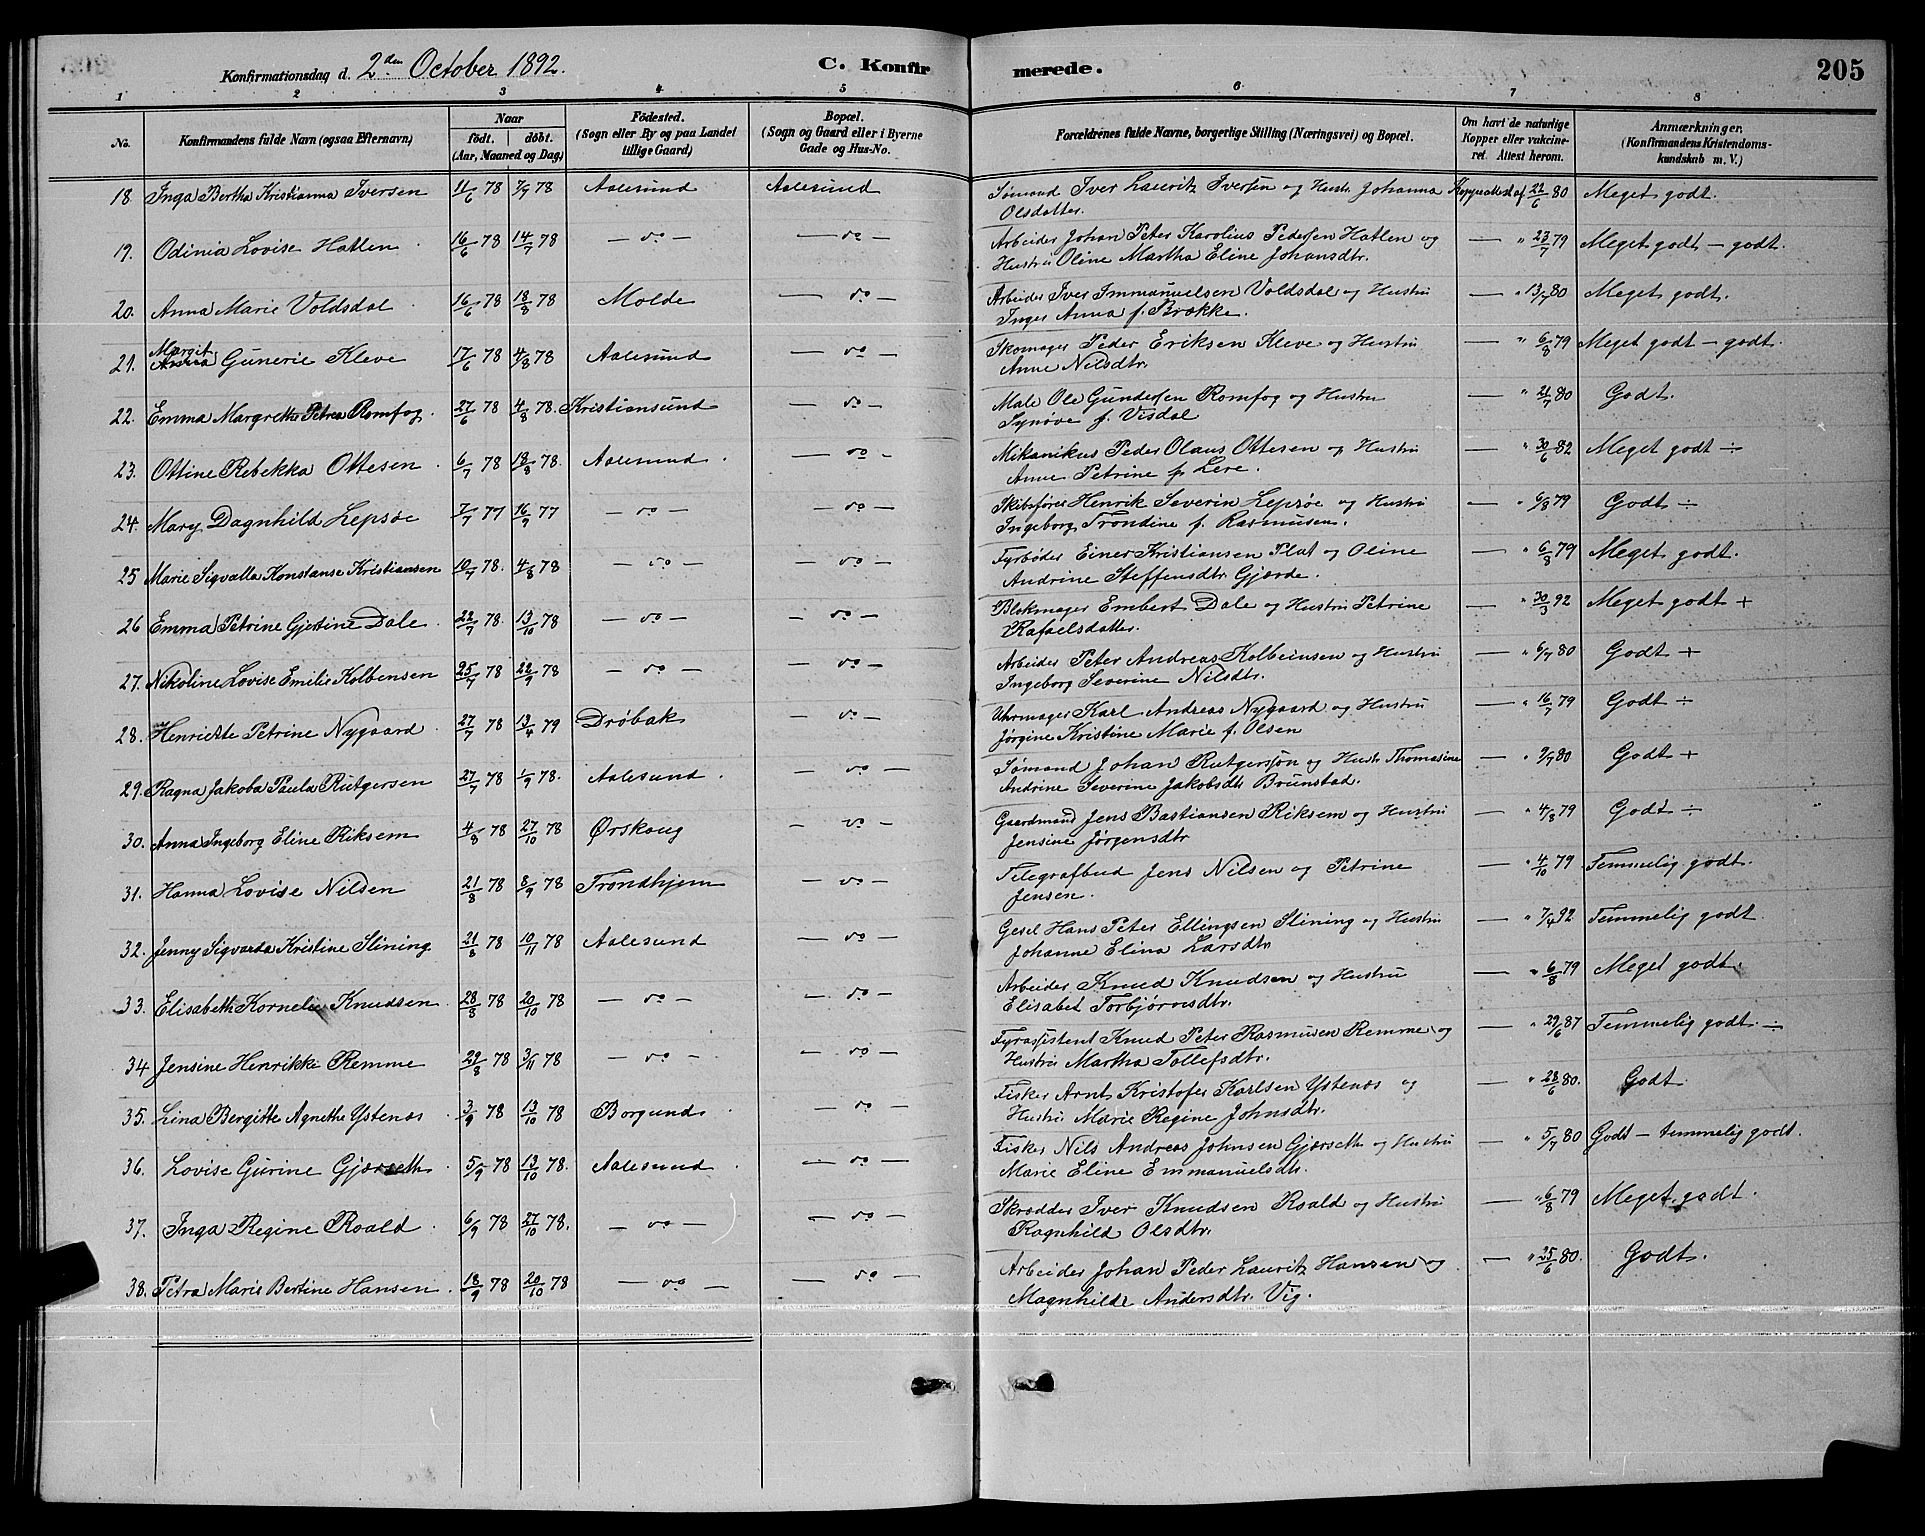 Konfirmationsdag d. 2den October 1892. C. Konfirmerede. 205
1 2 3 4 5 6 7 8
No. Konfirmandens fulde Navn (ogsaa Efternavn) Naar födt. döbt. (Aar, Maaned og Dag) Födested. (Sogn eller By og paa Landet tillige Gaard) Bopæl. (Sogn og Gaard eller i Byerne Gade og Hus-No. Forældrenes fulde Navne, borgerlige Stilling (Næringsvei) og Bopæl. Om havt de naturlige Kopper eller vakcineret. Attest herom. Anmærkninger. (Konfirmandens Kristendomskundskab m. V.)
18. Inga Bertha Kristianna Iversen 11/6 78 7/7 78 Aalesund Aalesund Sømand Iver Lauritz Iversen og Hustr. Johanna Koppeattest af 22/6 80 Meget godt.
Olsdatter.
19. Odinia Lovise Hatlen 16/6 78 14/7 78 — do — — do — Arbeider Johan Peter Karolius Pedersen Hatlen og — " 23/7 79 Meget godt — godt.
Hustru Oline Martha Eline Johansdtr.
20. Anna Marie Voldsdal 16/6 78 18/8 78 Molde — do — Arbeider Iver Immanuelsen Voldsdal og Hustru — " 13/7 80 Meget godt.
Inger Anna f. Brække.
21. Margit Gunerie Kleve 17/6 78 4/8 78 Aalesund — do — Skomager Peder Eriksen Kleve og Hustru — " 6/8 79 Meget godt — godt.
Anne Nilsdtr.
22. Emma Margrethe Petrea Romfog. 27/6 78 4/8 78. Kristiansund — do — Male Ole Gundersen Romfog og Hustru — " 21/7 80 Godt.
Synøve f. Visdal
23. Ottine Rebekka Ottesen 6/7 78 18/8 78. Aalesund — do — Mikanikus Peder Olaus Ottesen og Hustru — " 30/6 82 Meget godt ÷
Anne Petrine f. Lere.
24. Mary Dagnhild Lepsøe 7/7 77 16/9 77 — do — — do — Skibsfører Henrik Severin Lepsøe og Hustru — " 6/8 79 Godt ÷
Ingeborg Trondine f. Rasmusen.
25 Marie Sigvalla Konstanse Kristiansen 10/7 78. 4/8 78 — do — — do — Fyrbøder Einer Kristiansen Plat og Oline — " 6/8 79 Meget godt.
Andrine Steffensdtr. Gjærde.
26 Emma Petrine Gjertine Dale 22/7 78. 13/10 78 — do — — do — Blokmager Embert Dale og Hustru Petrine — " 30/3 92 Meget godt +
Rafaelsdatter.
27. Nikoline Lovise Emilie Kolbensen 25/7 78 22/9 78 — do — — do — Arbeider Peter Andreas Kolbeinsen og Hustru — " 6/7 80 Godt +
Ingeborg Severine Nilsdtr.
28. Henriette Petrine Nygaard 27/7 78 13/4 79 Drøbak — do — Uhrmager Karl Andreas Nygaard og Hustru — " 16/7 79 Godt ÷
Jørgine Kristine Marie f. Olsen
29. Ragna Jakoba Paula Rutgersen 27/7 78 1/9 78. Aalesund — do — Sømand Johan Rutgersson og Hustr. Thomasine — " 9/7 80 Godt +
Andrine Severine Jakobsdtr Brunstad.
30. Anna Ingeborg Eline Riksem 4/8 78 27/10 78 Ørskoug — do — Gaardmand Jens Bastiansen Riksem og Hustru — " 4/8 79 Godt ÷
Jensine Jørgensdtr
31. Hanna Lovise Nilsen 21/8 78 8/9 78 Trondhjem — do — Telegrafbud Jens Nilsen og Petrine — " 4/10 79 Temmelig godt.
Jensen.
32. Jenny Sigvarda Kristine Slining 21/8 78 10/11 78 Aalesund — do — Gesel Hans Peter Ellingsen Slining og Hustru — " 7/4 92 Temmelig godt
Johanne Elina Larsdtr
33. Elisabeth Kornelie Knudsen 28/8 78 20/10 78 — do — — do — Arbeider Knud Knudsen og Hustru — " 6/8 79 Meget godt.
Elisabet Torbjørnsdtr.
34 Jensine Henrikke Remme 29/8 78 3/11 78 — do — — do — Fyrassistent Knud Peter Rasmusen Remme og — " 29/6 87 Temmelig godt. ÷
Hustru Martha Tollefsdtr.
35. Lina Bergitte Agnethe Ystenæs 3/9 78 13/10 78 Borgund — do — Fisker Arnt Kristofer Karlsen Ystenæs og — " 28/6 80. Godt
Hustru Marie Regine Johnsdtr.
36. Lovise Gurine Gjærseth 5/9 78 13/10 78. Aalesund — do — Fisker Nils Andreas Johnsen Gjærseth og Hustru — " 5/7 80 Godt — temmelig godt.
Marie Eline Emmanuelsdtr.
37. Inga Regine Roald 6/9 78 27/10 78. — do — — do — Skrædder Iver Knudsen Roald og Hustru — " 6/8 79 Meget godt.
Ragnhild Olsdtr.
38. Petra Marie Bertine Hansen 18/9 78 20/10 78 — do — — do — Arbeider Johan Peder Lauritz Hansen og — " 25/6 80. Godt.
Magnhilde Andersdtr. Vig.